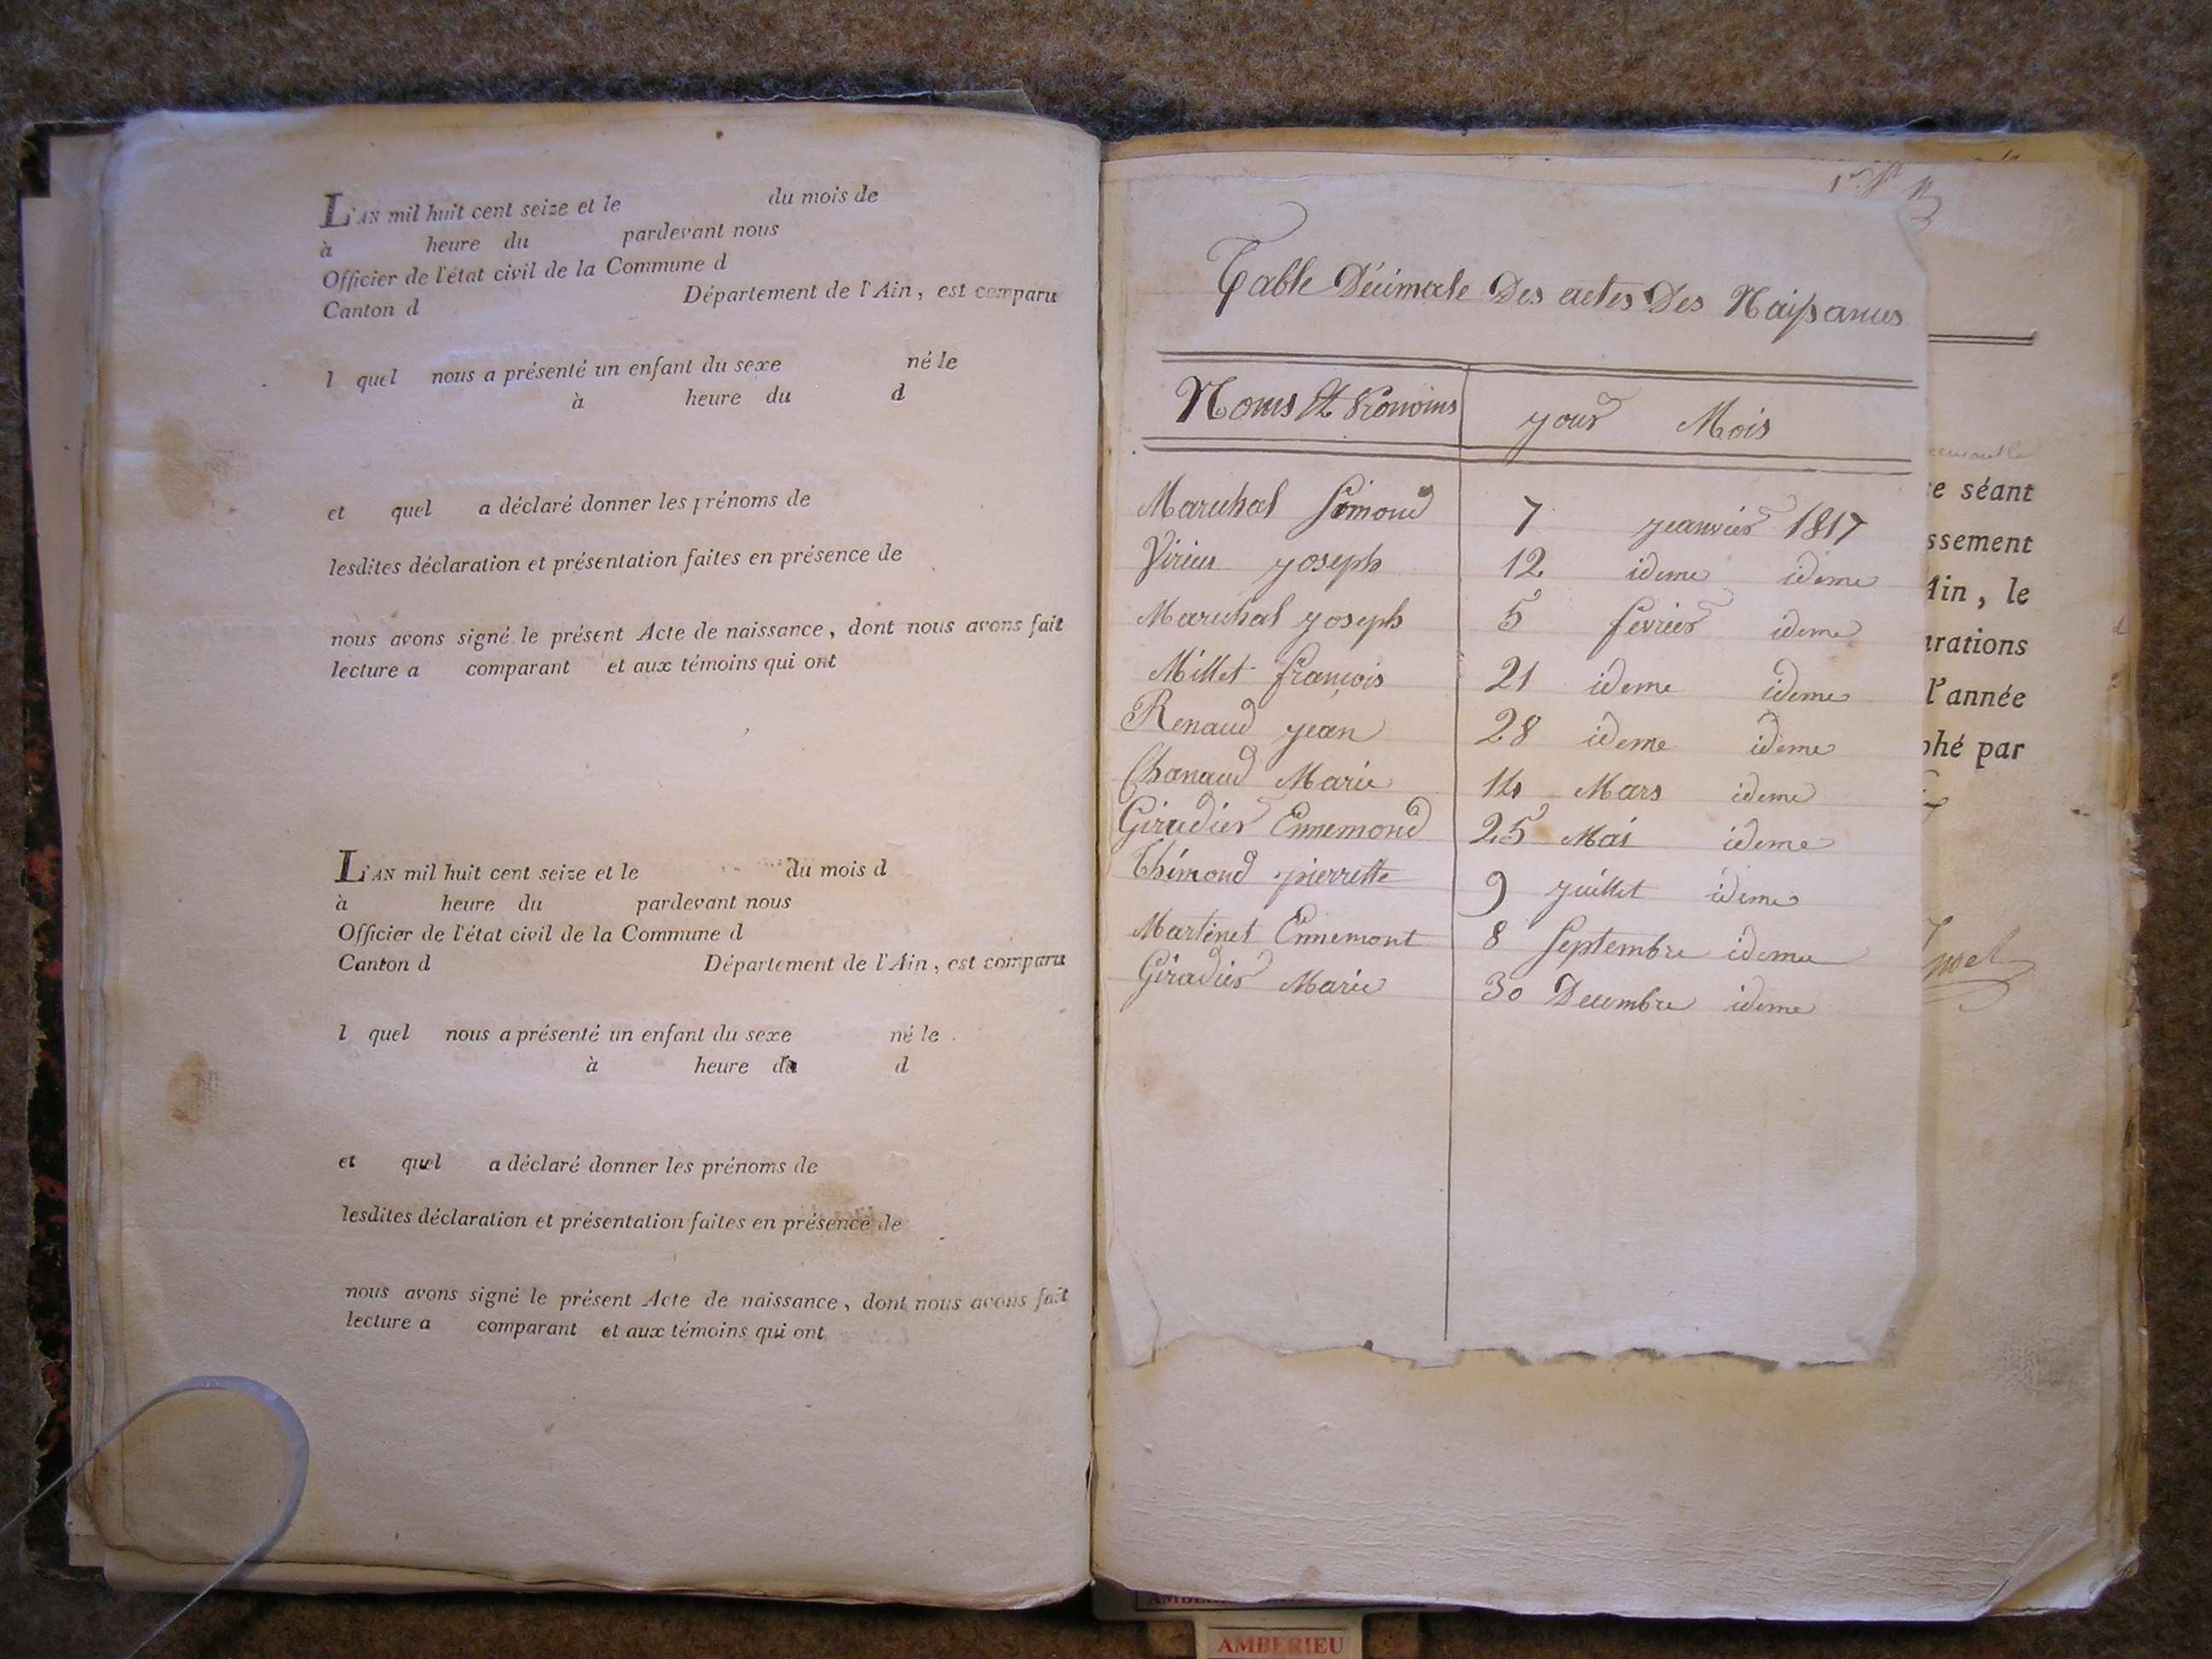 L'AN mil huit cent seize et le du mois de
à heure du pardevant nous
Officier de l'état civil de la Commune d
Canton d Département de l'Ain, est comparu
l quel nous a présenté un enfant du sexe né le
à heure du d
et quel a déclaré donner les prénoms de
lesdites déclaration et présentation faites en présence de
nous avons signé le présent Acte de naissance, dont nous avons fait
lecture a comparant et aux témoins qui ont
L'AN mil huit cent seize et le du mois d
à heure du pardevant nous
Officier de l'état civil de la Commune d
Canton d Département de l'Ain, est comparu
l quel nous a présenté un enfant du sexe né le
à heure du d
et quel a déclaré donner les prénoms de
lesdites déclaration et présentation faites en présence de
nous avons signé le présent Acte de naissance, dont nous avons fait
lecture a comparant et aux témoins qui ont
Table Décimale Des actes Des Naissances
Noms Et Prenoms jour Mois
Marechal Simond 7 jeanvier 1817
Virieu joseph 12 ideme ideme
Marechal joseph 5 fevrier ideme
Millet françois 21 ideme ideme
Renaud jean 28 ideme ideme
Chanaud Marie 14 Mars ideme
Giradier Ennemond 25 Mai ideme
Thimond pierrette 9 juillet ideme
Martinet Ennemont 8 Septembre ideme
Giradier Marie 30 Decembre ideme
e séant
ssement
Ain, le
arations
l'année
phé par
AMBERIEU